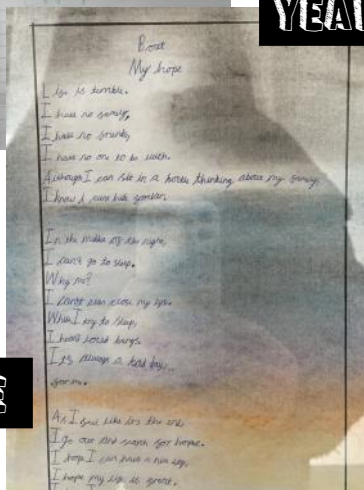 YEA
My hope
Life is terrible.
I have no family,
I have no friends,
I have no one to be with.
Although I can sit in a house thinking about my family,
I know I can
In the middle of the night,
I can't go to sleep.
Why me?
I can't even close my eyes.
When I try to sleep,
I hear loud bangs.
It's always a bad day...
for me.
As I feel like it's the end,
I go out and search for hope.
I hope I can have a new
I hope my life is great.